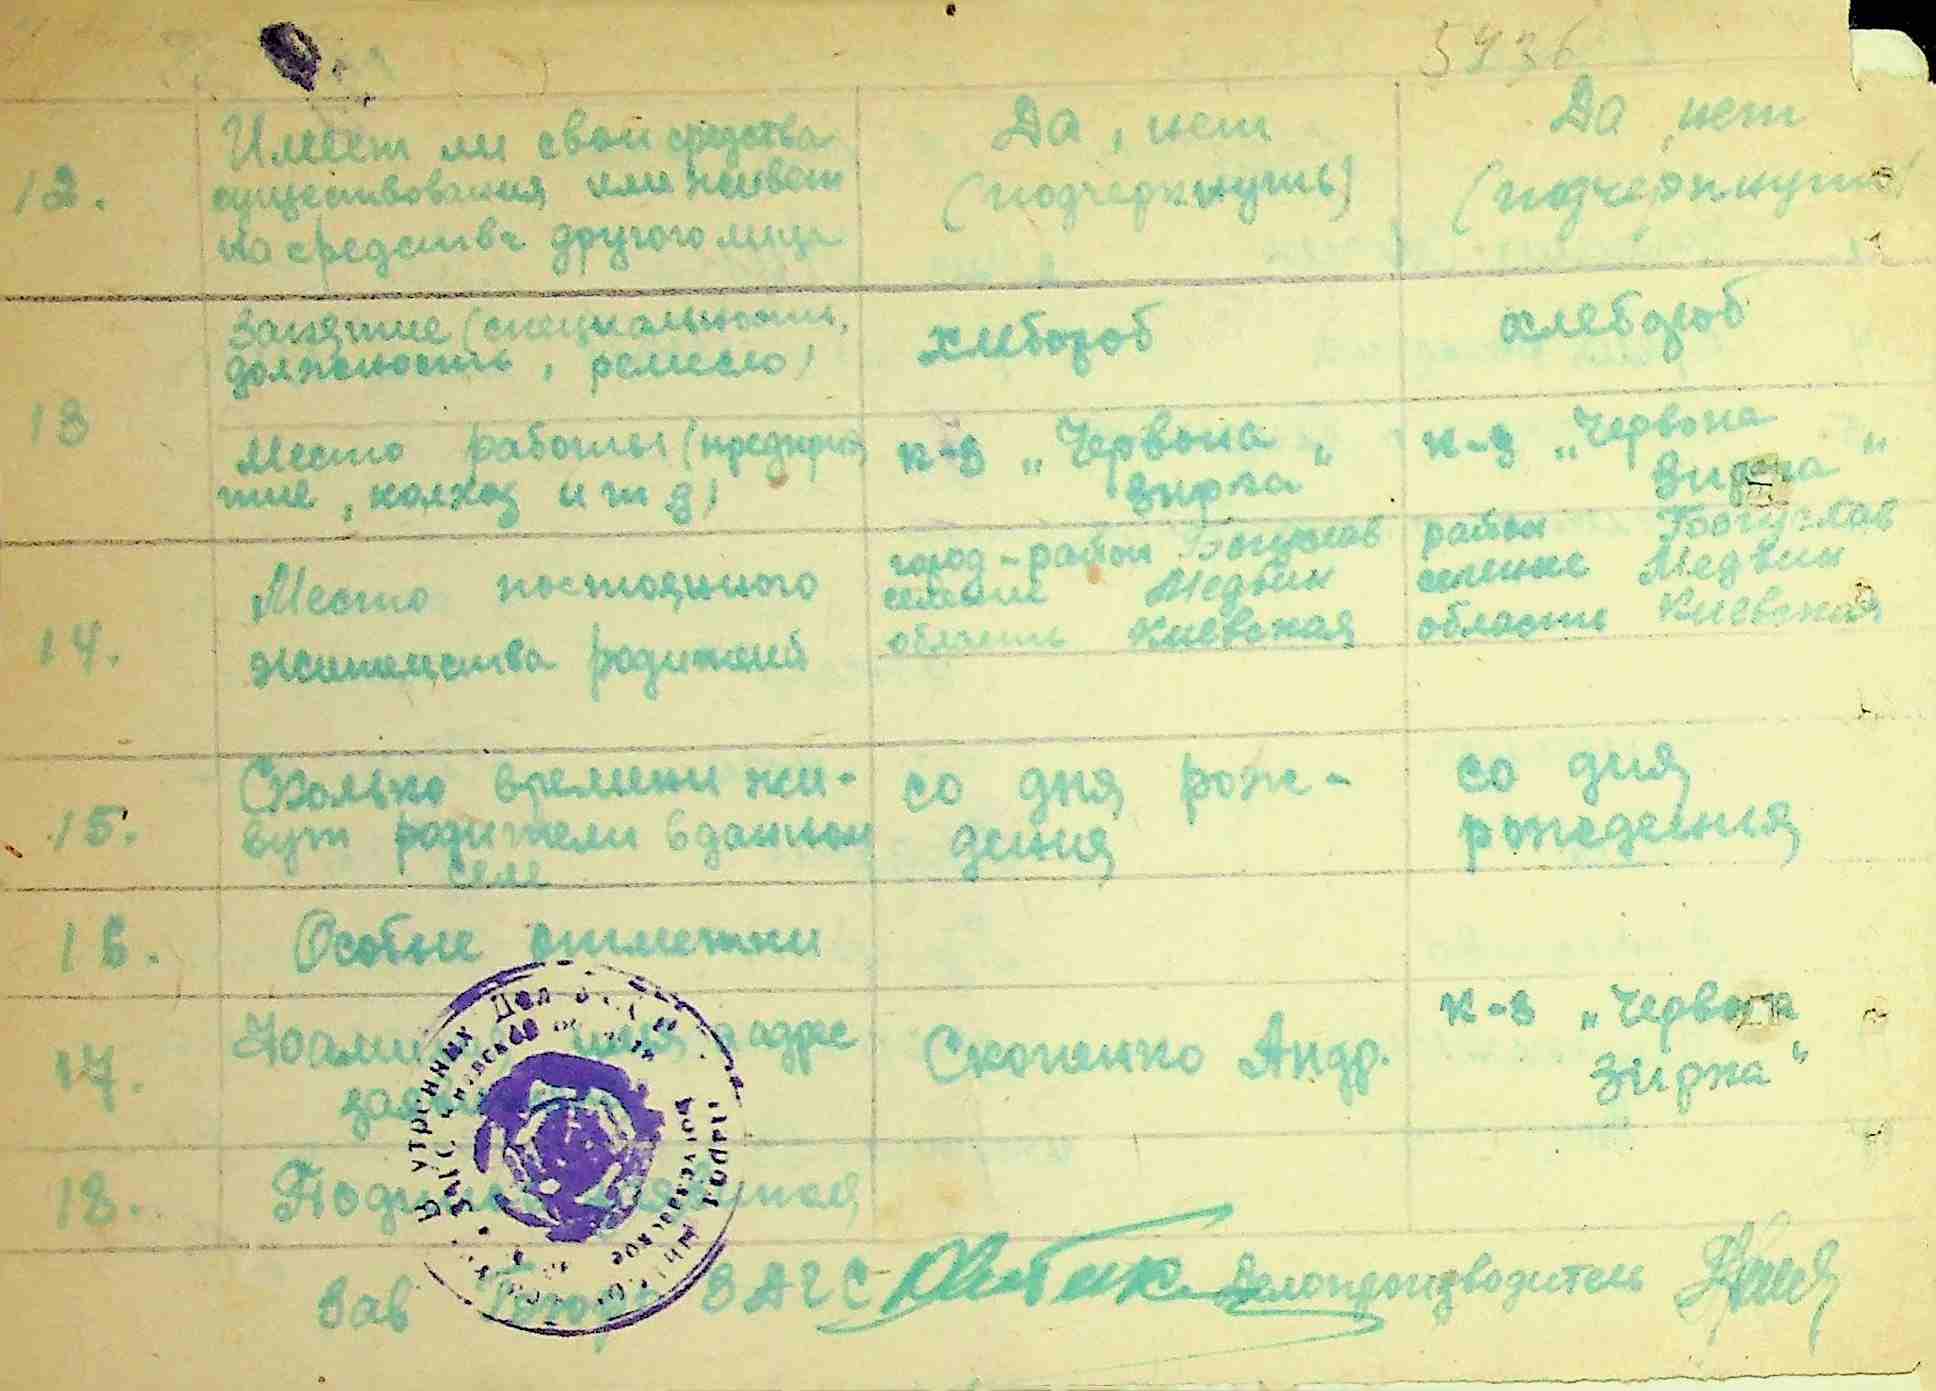 5936
12.
Имеет ли свои средства
существования или живет
на средства другого лица
Да, нет
(подчеркнуть)
Да, нет
(подчеркнуть)
13
Занятие (специальность,
должность, ремесло)
хлебороб
хлебороб
Место работы (предприя
тие, колхоз и т д)
к-з „Червона
зирка"
к-з „Червона
зирка"
14.
Место постоянного
жительства родителей
город - район Богуслав
селение Медвин
область Киевская
район Богуслав
селение Медвин
область Киевская
15.
Сколько времени жи-
вут родители в данном
селе
со дня рож-
дения
со дня
рождения
16.
Особые отметки
17.
Фамилия имя адрес
Скопенко Андр.
к-з „Червона
зирка"
18.
Подпись заявителя
Зав ЗАГС
Делопроизводитель